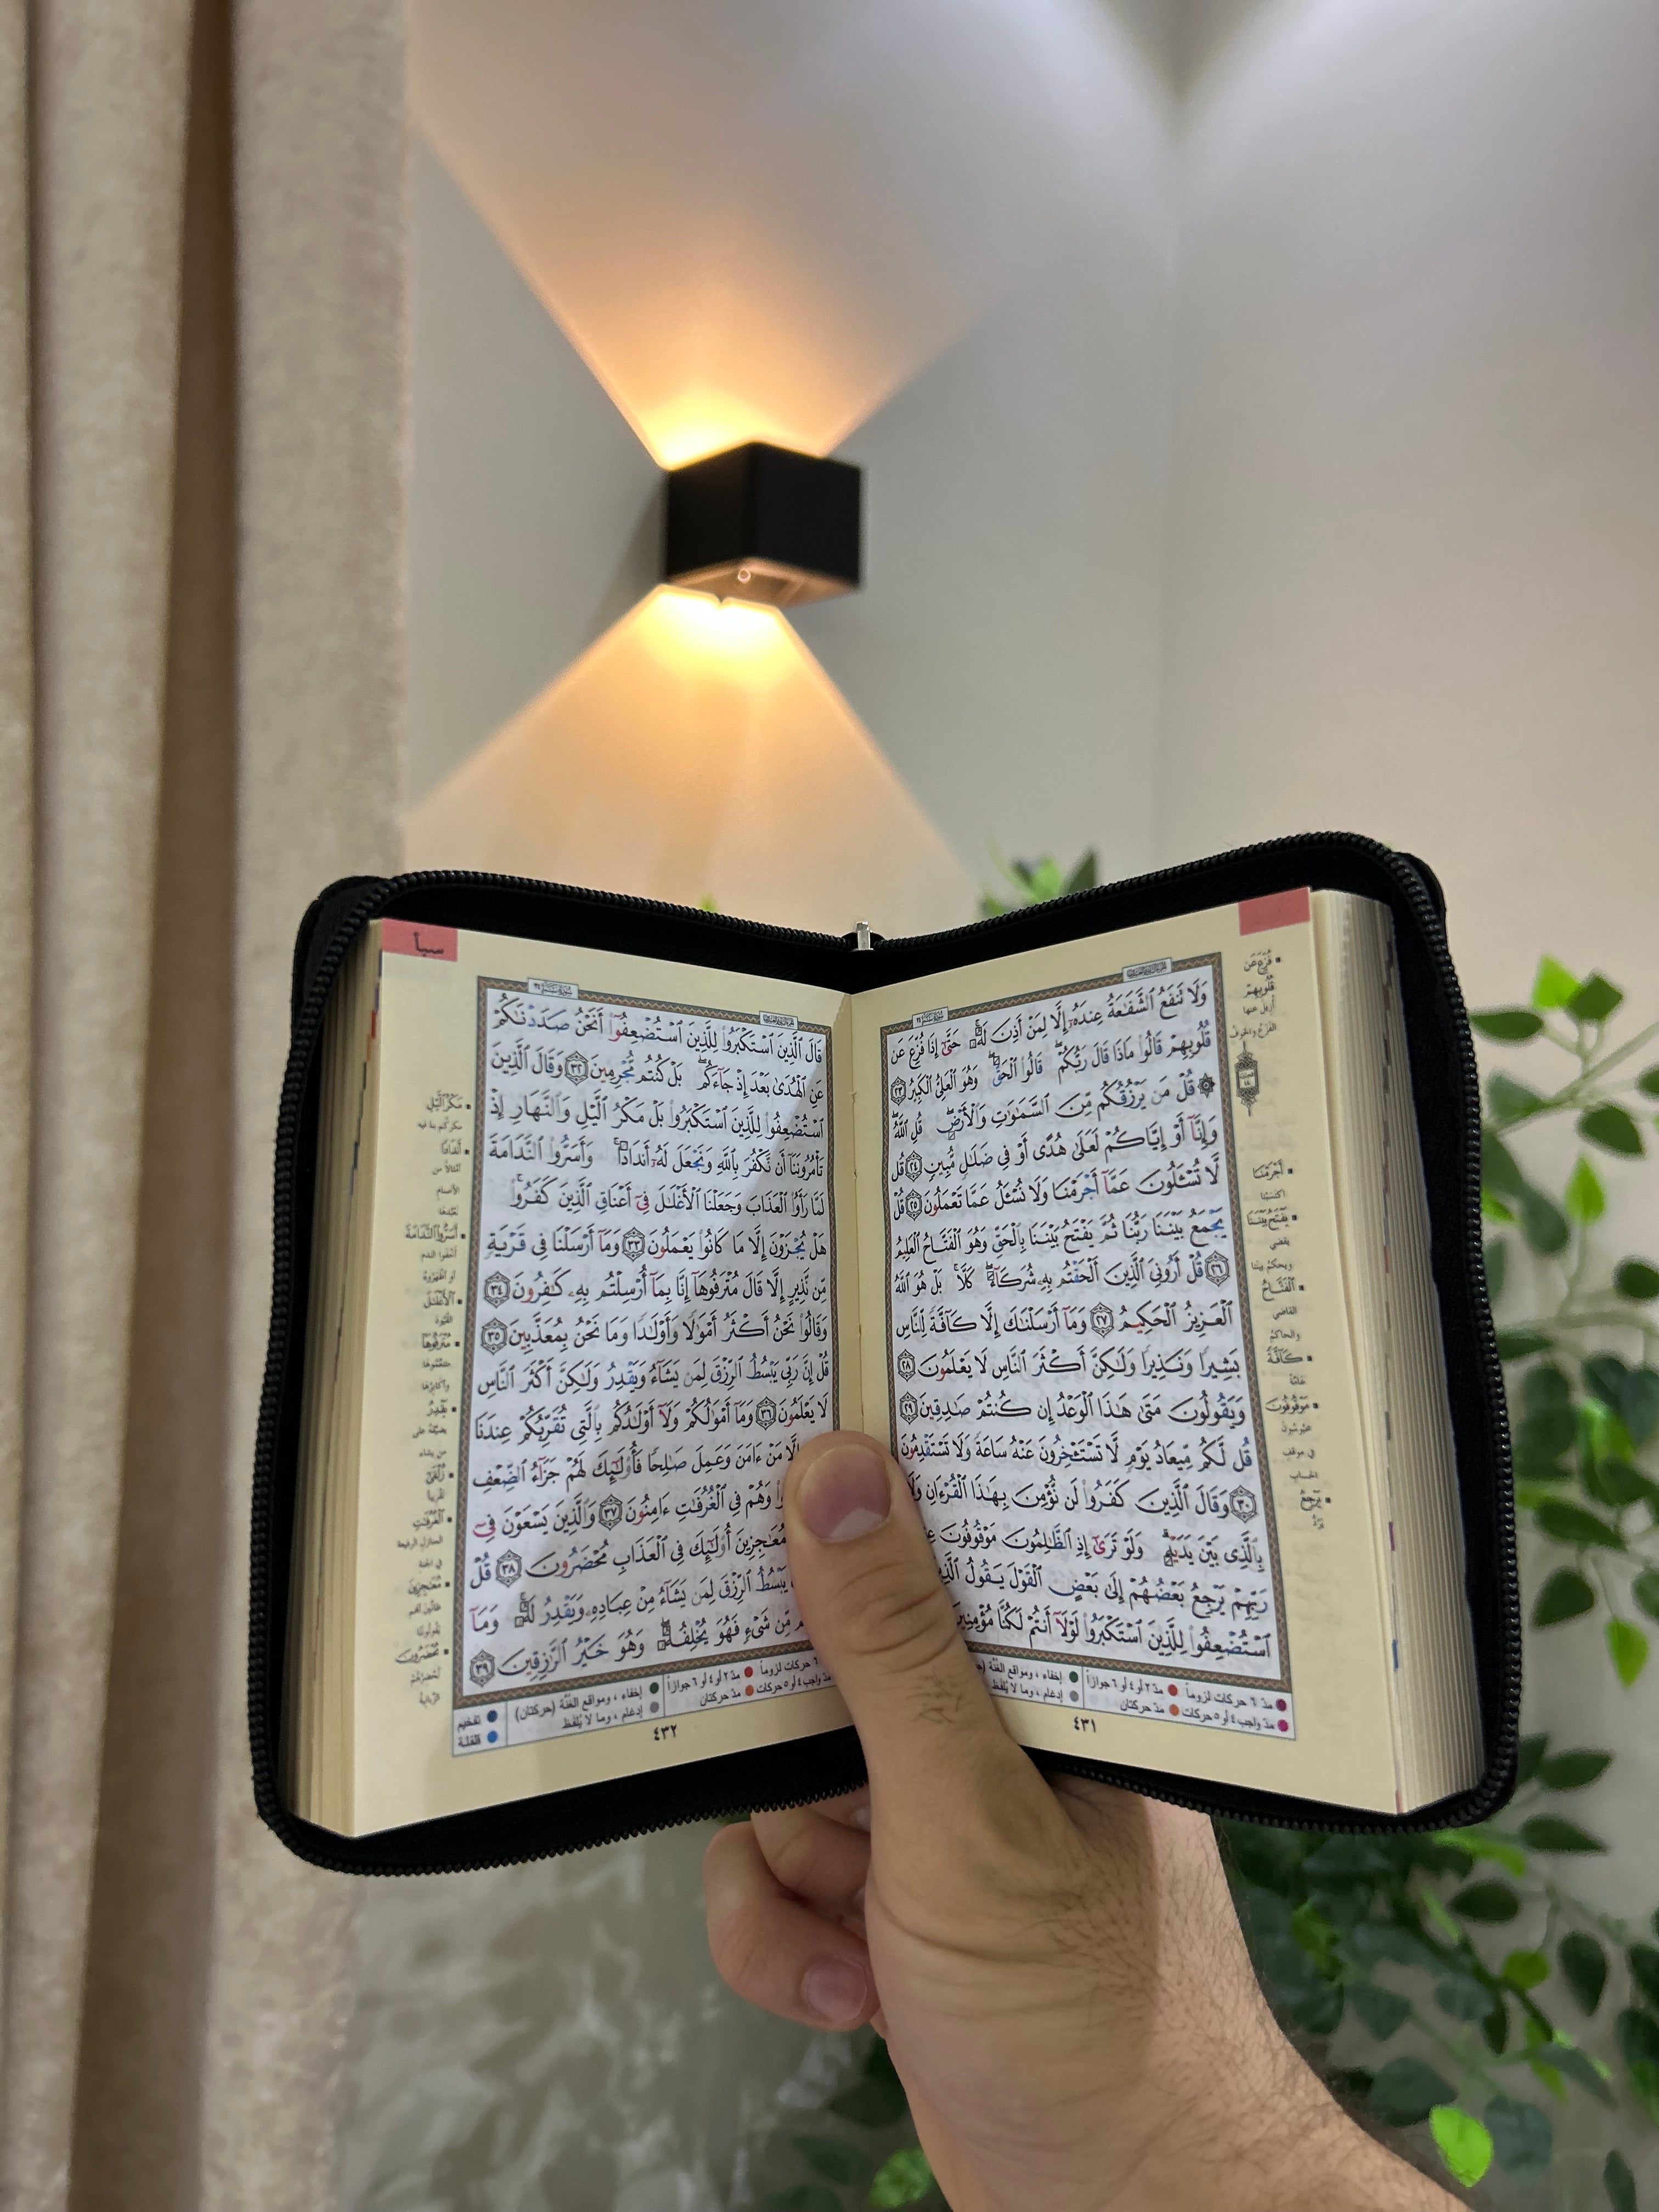 وَلَا تَنفَعُ ٱلشَّفَٰعَةُ عِندَهُۥٓ إِلَّا لِمَنْ أَذِنَ لَهُۥ حَتَّىٰٓ إِذَا فُزِّعَ عَن
قُلُوبِهِمْ قَالُوا۟ مَاذَا قَالَ رَبُّكُمْ قَالُوا۟ ٱلْحَقَّ وَهُوَ ٱلْعَلِىُّ ٱلْكَبِيرُ ٢٣
۞ قُلْ مَن يَرْزُقُكُم مِّنَ ٱلسَّمَٰوَٰتِ وَٱلْأَرْضِ قُلِ ٱللَّهُ
وَإِنَّآ أَوْ إِيَّاكُمْ لَعَلَىٰ هُدًى أَوْ فِى ضَلَٰلٍ مُّبِينٍ ٢٤ قُل
لَّا تُسْـَٔلُونَ عَمَّآ أَجْرَمْنَا وَلَا نُسْـَٔلُ عَمَّا تَعْمَلُونَ ٢٥ قُلْ
يَجْمَعُ بَيْنَنَا رَبُّنَا ثُمَّ يَفْتَحُ بَيْنَنَا بِٱلْحَقِّ وَهُوَ ٱلْفَتَّاحُ ٱلْعَلِيمُ
٢٦ قُلْ أَرُونِىَ ٱلَّذِينَ أَلْحَقْتُم بِهِۦ شُرَكَآءَ كَلَّا بَلْ هُوَ ٱللَّهُ
ٱلْعَزِيزُ ٱلْحَكِيمُ ٢٧ وَمَآ أَرْسَلْنَٰكَ إِلَّا كَآفَّةً لِّلنَّاسِ
بَشِيرًا وَنَذِيرًا وَلَٰكِنَّ أَكْثَرَ ٱلنَّاسِ لَا يَعْلَمُونَ ٢٨
وَيَقُولُونَ مَتَىٰ هَٰذَا ٱلْوَعْدُ إِن كُنتُمْ صَٰدِقِينَ ٢٩
قُل لَّكُم مِّيعَادُ يَوْمٍ لَّا تَسْتَـْٔخِرُونَ عَنْهُ سَاعَةً وَلَا تَسْتَقْدِمُونَ
٣٠ وَقَالَ ٱلَّذِينَ كَفَرُوا۟ لَن نُّؤْمِنَ بِهَٰذَا ٱلْقُرْءَانِ وَلَا
بِٱلَّذِى بَيْنَ يَدَيْهِ وَلَوْ تَرَىٰٓ إِذِ ٱلظَّٰلِمُونَ مَوْقُوفُونَ
رَبِّهِمْ يَرْجِعُ بَعْضُهُمْ إِلَىٰ بَعْضٍ ٱلْقَوْلَ يَقُولُ
ٱسْتُضْعِفُوا۟ لِلَّذِينَ ٱسْتَكْبَرُوا۟ لَوْلَآ أَنتُمْ لَكُنَّا مُؤْمِنِينَ
مدّ ٦ حركات لزوماً مدّ ٢ أو ٤ أو ٦ جوازاً إخفاء ، ومواقع الغُنَّة
مدّ واجب ٤ أو ٥ حركات مدّ حركتان إدغام ، وما لا يُلفظ
٤٣١
فُزِّعَ عَن
قُلُوبِهِمْ
أزيل عنها
الفزع والخوف
أَجْرَمْنَا
اكتسبنا
يَفْتَحُ بَيْنَنَا
يقضي
ويحكم بيننا
ٱلْفَتَّاحُ
القاضي
والحاكم
كَآفَّةً
عامّة
مَوْقُوفُونَ
محبوسون
في موقف
الحساب
يَرْجِعُ
يردّ
سبأ
قَالَ ٱلَّذِينَ ٱسْتَكْبَرُوا۟ لِلَّذِينَ ٱسْتُضْعِفُوٓا۟ أَنَحْنُ صَدَدْنَٰكُمْ
عَنِ ٱلْهُدَىٰ بَعْدَ إِذْ جَآءَكُم بَلْ كُنتُم مُّجْرِمِينَ ٣٢ وَقَالَ ٱلَّذِينَ
ٱسْتُضْعِفُوا۟ لِلَّذِينَ ٱسْتَكْبَرُوا۟ بَلْ مَكْرُ ٱلَّيْلِ وَٱلنَّهَارِ إِذْ
تَأْمُرُونَنَآ أَن نَّكْفُرَ بِٱللَّهِ وَنَجْعَلَ لَهُۥٓ أَندَادًا وَأَسَرُّوا۟ ٱلنَّدَامَةَ
لَمَّا رَأَوُا۟ ٱلْعَذَابَ وَجَعَلْنَا ٱلْأَغْلَٰلَ فِىٓ أَعْنَاقِ ٱلَّذِينَ كَفَرُوا۟
هَلْ يُجْزَوْنَ إِلَّا مَا كَانُوا۟ يَعْمَلُونَ ٣٣ وَمَآ أَرْسَلْنَا فِى قَرْيَةٍ
مِّن نَّذِيرٍ إِلَّا قَالَ مُتْرَفُوهَآ إِنَّا بِمَآ أُرْسِلْتُم بِهِۦ كَٰفِرُونَ ٣٤
وَقَالُوا۟ نَحْنُ أَكْثَرُ أَمْوَٰلًا وَأَوْلَٰدًا وَمَا نَحْنُ بِمُعَذَّبِينَ ٣٥
قُلْ إِنَّ رَبِّى يَبْسُطُ ٱلرِّزْقَ لِمَن يَشَآءُ وَيَقْدِرُ وَلَٰكِنَّ أَكْثَرَ ٱلنَّاسِ
لَا يَعْلَمُونَ ٣٦ وَمَآ أَمْوَٰلُكُمْ وَلَآ أَوْلَٰدُكُم بِٱلَّتِى تُقَرِّبُكُمْ عِندَنَا
إِلَّا مَنْ ءَامَنَ وَعَمِلَ صَٰلِحًا فَأُو۟لَٰٓئِكَ لَهُمْ جَزَآءُ ٱلضِّعْفِ
وَهُمْ فِى ٱلْغُرُفَٰتِ ءَامِنُونَ ٣٧ وَٱلَّذِينَ يَسْعَوْنَ فِىٓ
مُعَٰجِزِينَ أُو۟لَٰٓئِكَ فِى ٱلْعَذَابِ مُحْضَرُونَ ٣٨ قُلْ
يَبْسُطُ ٱلرِّزْقَ لِمَن يَشَآءُ مِنْ عِبَادِهِۦ وَيَقْدِرُ لَهُۥ وَمَآ
مِّن شَىْءٍ فَهُوَ يُخْلِفُهُۥ وَهُوَ خَيْرُ ٱلرَّٰزِقِينَ ٣٩
٦ حركات لزوماً مدّ ٢ أو ٤ أو ٦ جوازاً إخفاء ، ومواقع الغُنَّة (حركتان) تفخيم
مدّ واجب ٤ أو ٥ حركات مدّ حركتان إدغام ، وما لا يُلفظ قلقلة
٤٣٢
مَكْرُ ٱلَّيْلِ
مكركم بنا فيه
أَندَادًا
أمثالاً من
الأصنام
نعبدها
أَسَرُّوا۟ ٱلنَّدَامَةَ
أخفوا الندم
أو أظهروه
ٱلْأَغْلَٰلَ
القيود
مُتْرَفُوهَآ
متنعّموها
وأكابرها
يَقْدِرُ
يضيّقه على
من يشاء
زُلْفَىٰٓ
تقريبا
ٱلْغُرُفَٰتِ
المنازل الرفيعة
في الجنة
مُعَٰجِزِينَ
ظانّين أنهم
يفوتوننا
مُحْضَرُونَ
تحضرهم
الزبانية